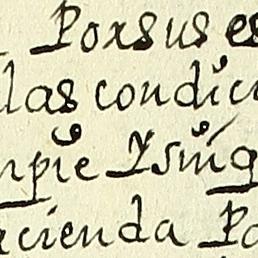 Porsus es
las condici
npie Ysinq
acienda Po